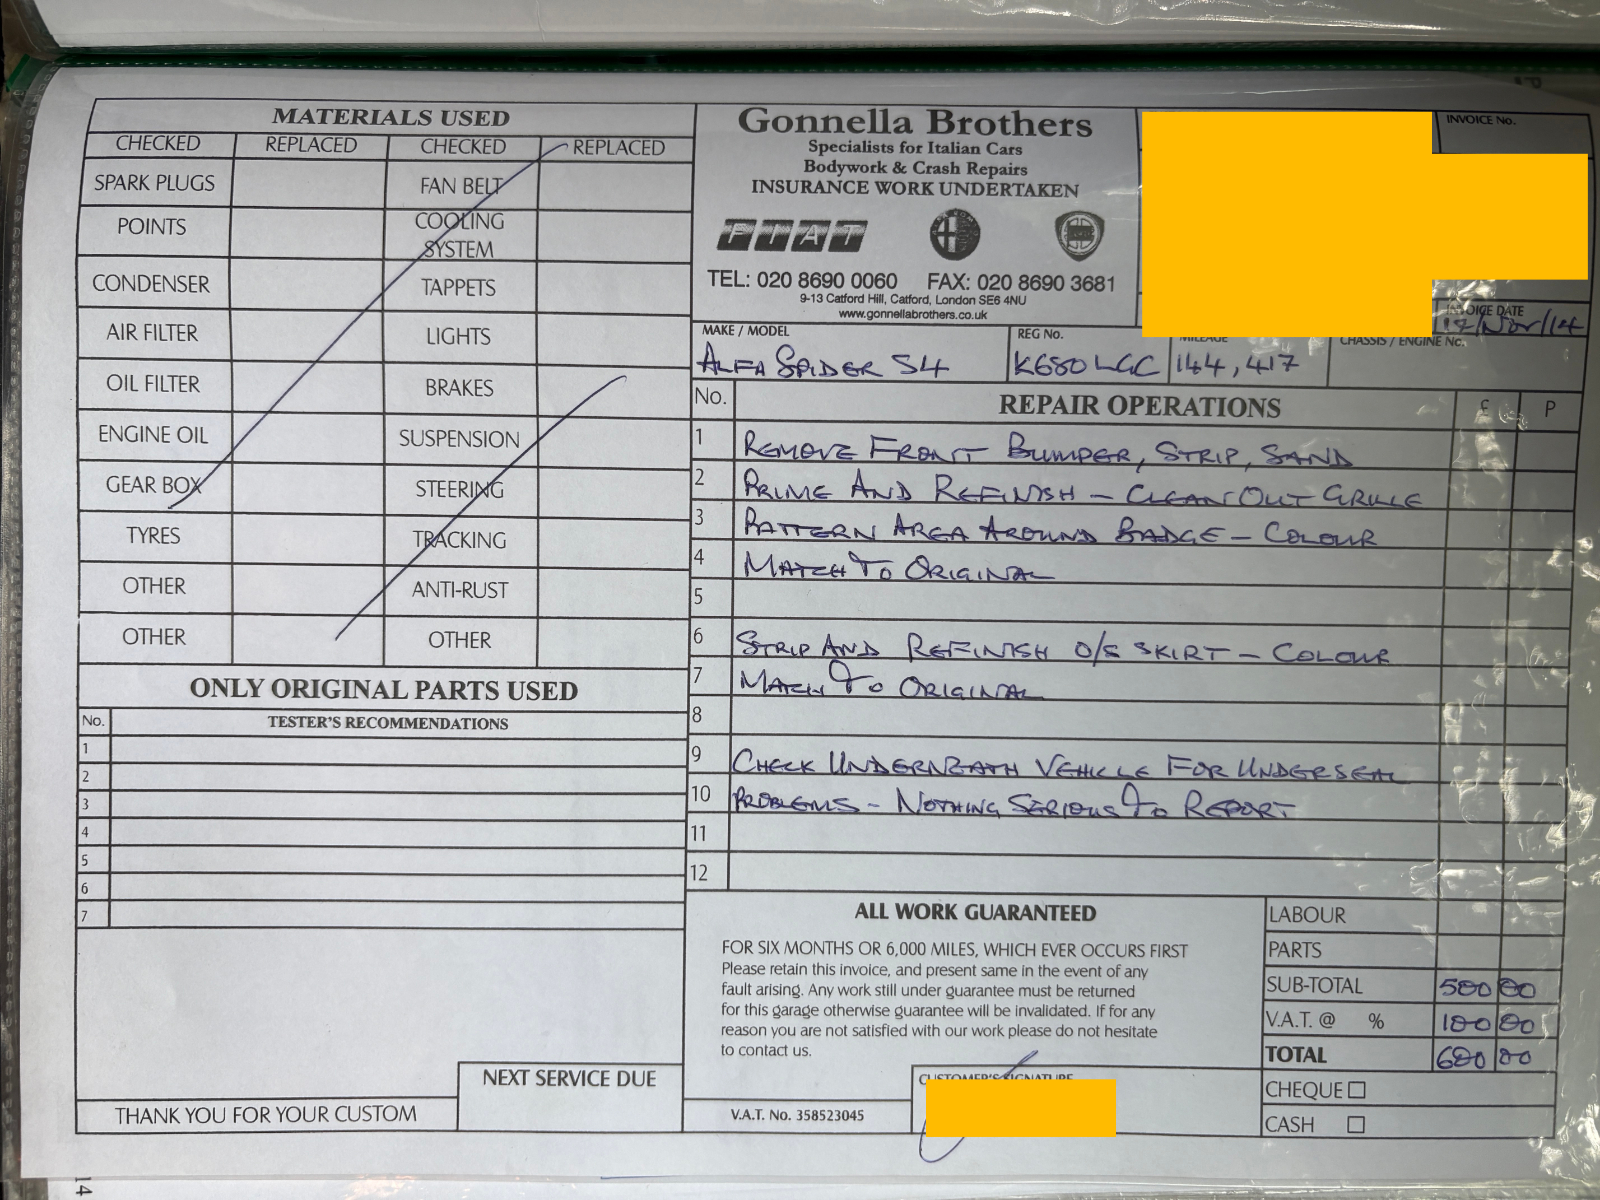 MATERIALS USED
CHECKED REPLACED CHECKED REPLACED
SPARK PLUGS FAN BELT
POINTS COOLING SYSTEM
CONDENSER TAPPETS
AIR FILTER LIGHTS
OIL FILTER BRAKES
ENGINE OIL SUSPENSION
GEAR BOX STEERING
TYRES TRACKING
OTHER ANTI-RUST
OTHER OTHER
ONLY ORIGINAL PARTS USED
No. TESTER'S RECOMMENDATIONS
1
2
3
4
5
6
7
NEXT SERVICE DUE
THANK YOU FOR YOUR CUSTOM
Gonnella Brothers
Specialists for Italian Cars
Bodywork & Crash Repairs
INSURANCE WORK UNDERTAKEN
FIAT
TEL: 020 8690 0060 FAX: 020 8690 3681
9-13 Catford Hill, Catford, London SE6 4NU
www.gonnellabrothers.co.uk
INVOICE No.
INVOICE DATE
/Nov/14
MAKE / MODEL REG No. MILEAGE CHASSIS / ENGINE No.
ALFA SPIDER S4 K680 LGC 144,417
No. REPAIR OPERATIONS £ P
1 REMOVE FRONT BUMPER, STRIP, SAND
2 PRIME AND REFINISH – CLEAN OUT GRILLE
3 PATTERN AREA AROUND BADGE – COLOUR
4 MATCH TO ORIGINAL
5
6 STRIP AND REFINISH O/S SKIRT – COLOUR
7 MATCH TO ORIGINAL
8
9 CHECK UNDERNEATH VEHICLE FOR UNDERSEAL
10 PROBLEMS – NOTHING SERIOUS TO REPORT
11
12
ALL WORK GUARANTEED
FOR SIX MONTHS OR 6,000 MILES, WHICH EVER OCCURS FIRST
Please retain this invoice, and present same in the event of any
fault arising. Any work still under guarantee must be returned
for this garage otherwise guarantee will be invalidated. If for any
reason you are not satisfied with our work please do not hesitate
to contact us.
LABOUR
PARTS
SUB-TOTAL 500 00
V.A.T. @ % 100 00
TOTAL 600 00
CHEQUE
CASH
V.A.T. No. 358523045
CUSTOMER'S SIGNATURE
14